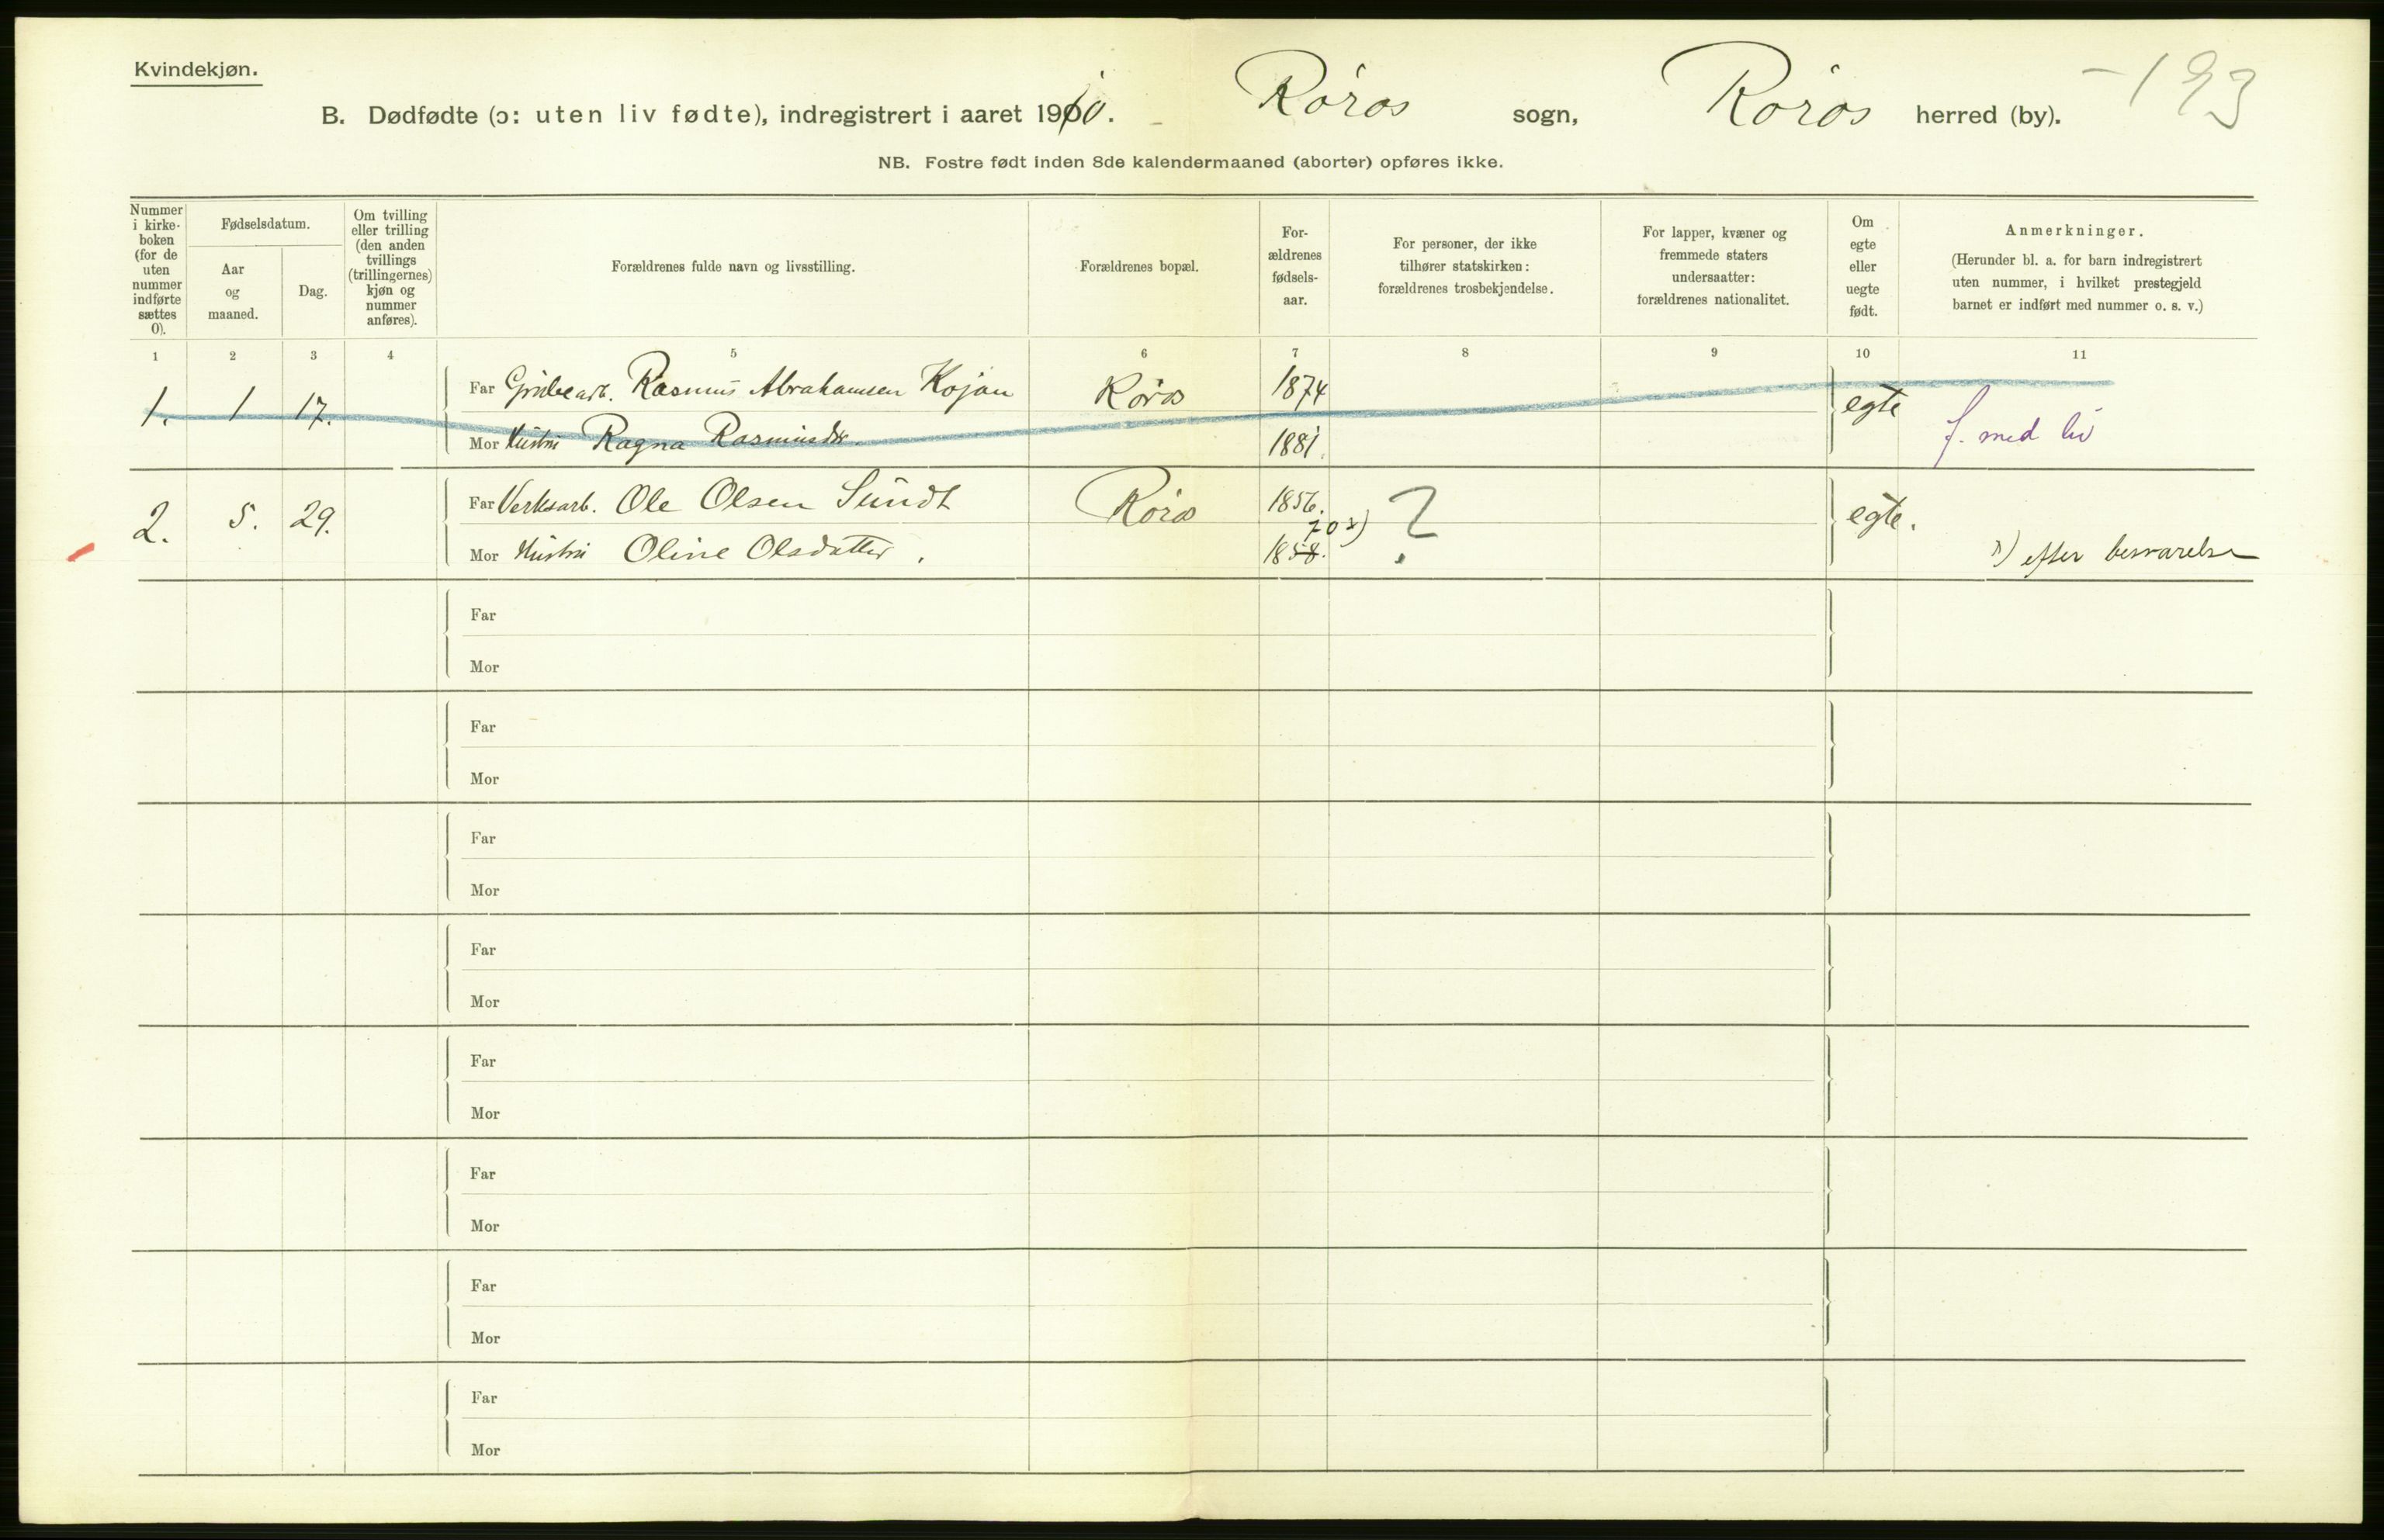 Kvindekjøn.
B. Dødfødte (ɔ: uten liv fødte), indregistrert i aaret 1910. Röros sogn, Röros herred (by). -193
NB. Fostre født inden 8de kalendermaaned (aborter) opføres ikke.
Nummer i kirke-boken (for de uten nummer indførte sættes 0).
Fødselsdatum.
Aar og maaned.
Dag.
Om tvilling eller trilling (den anden tvillings (trillingernes) kjøn og nummer anføres).
Forældrenes fulde navn og livsstilling.
Forældrenes bopæl.
For-ældrenes fødsels-aar.
For personer, der ikke tilhører statskirken: forældrenes trosbekjendelse.
For lapper, kvæner og fremmede staters undersaatter: forældrenes nationalitet.
Om egte eller uegte født.
Anmerkninger.
(Herunder bl. a. for barn indregistrert uten nummer, i hvilket prestegjeld barnet er indført med nummer o. s. v.)
1 2 3 4 5 6 7 8 9 10 11
1. 1 17. Far Grubearb. Rasmus Abrahamsen Kojan Röros 1874 egte f. med liv
Mor Hustru Ragna Rasmusdtr. 1881.
2. 5. 29. Far Verksarb. Ole Olsen Sundt Röros 1856. ? egte.
Mor Hustru Oline Olsdatter. 1858. 70 x) x) efter besvarelse
Far
Mor
Far
Mor
Far
Mor
Far
Mor
Far
Mor
Far
Mor
Far
Mor
Far
Mor